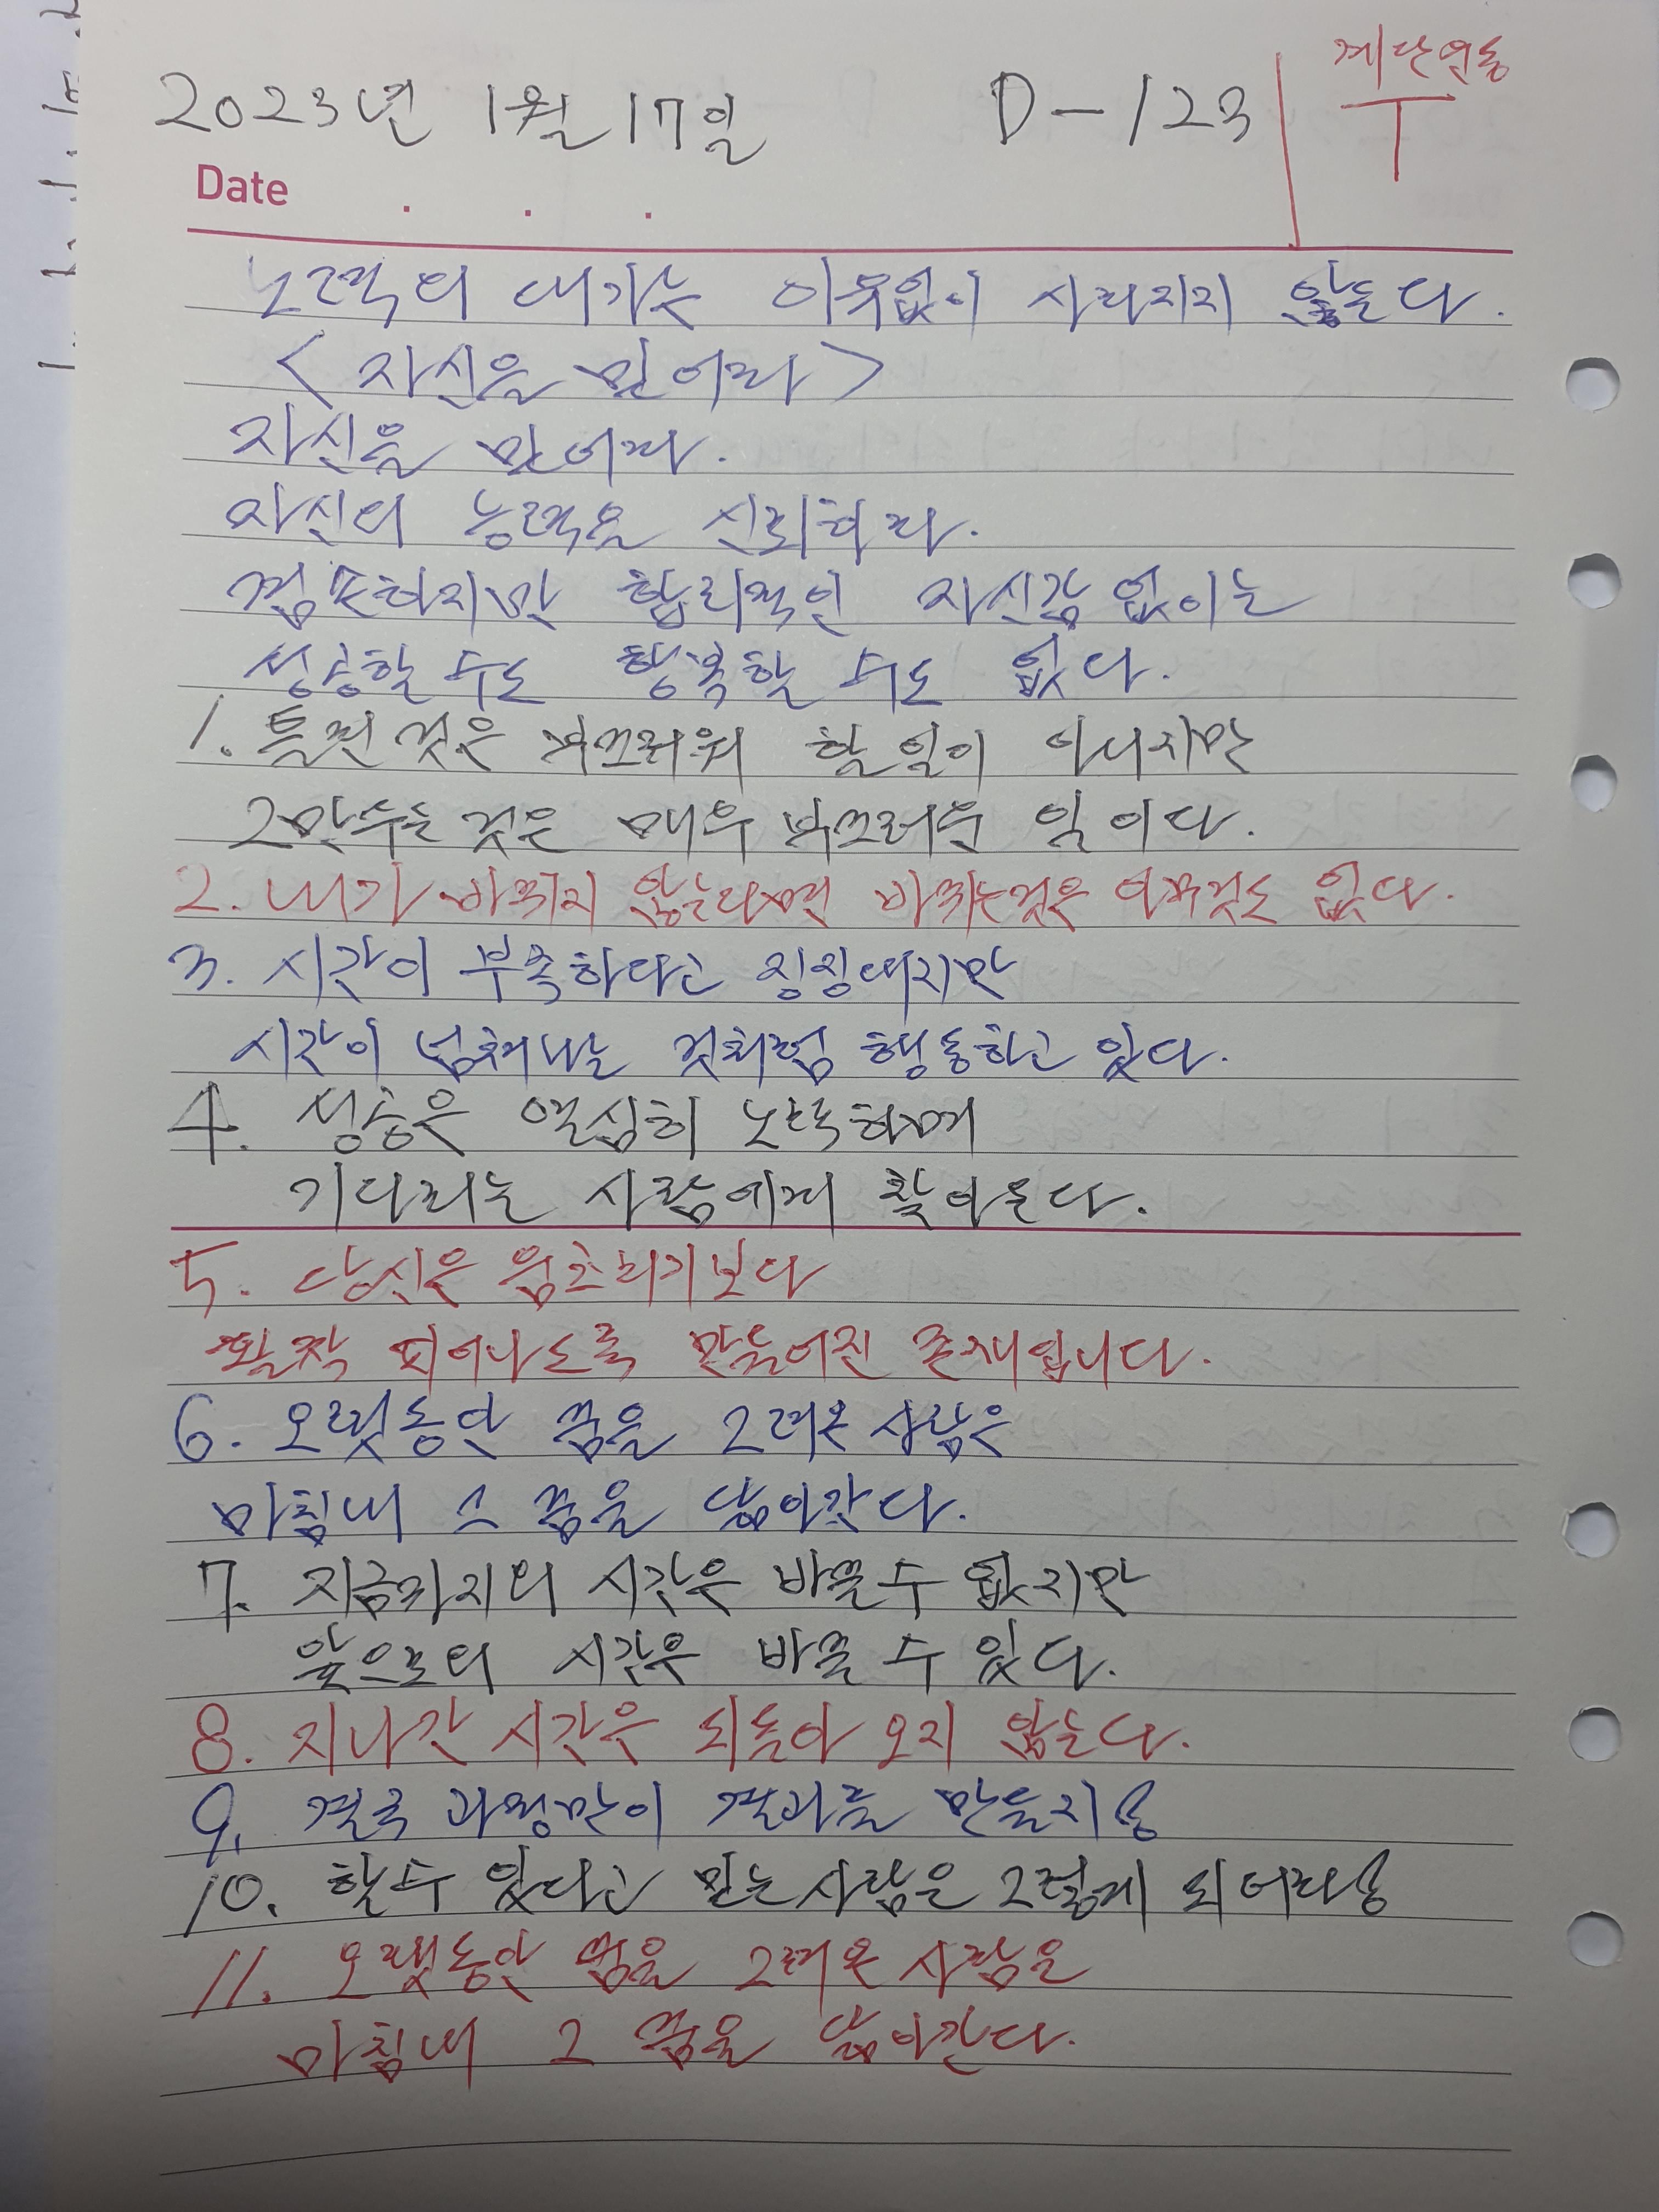 2023년 1월 17일 D-123
계단운동
T
Date . . .
노력의 대가는 이유없이 사라지지 않는다.
<자신을 믿어라>
자신을 믿어라.
자신의 능력을 신뢰하라.
겸손하지만 합리적인 자신감 없이는
성공할 수도 행복할 수도 없다.
1. 틀린 것은 부끄러워 할 일이 아니지만
그만두는 것은 매우 부끄러운 일이다.
2. 내가 바뀌지 않는다면 바뀌는것은 아무것도 없다.
3. 시간이 부족하다고 징징대지만
시간이 넘쳐나는 것처럼 행동하고 있다.
4. 성공은 열심히 노력하며
기다리는 사람에게 찾아온다.
5. 당신은 움츠리기보다
활짝 피어나도록 만들어진 존재입니다.
6. 오랫동안 꿈을 그려온 사람은
마침내 그 꿈을 닮아간다.
7. 지금까지의 시간은 바꿀 수 없지만
앞으로의 시간은 바꿀 수 있다.
8. 지나간 시간은 되돌아 오지 않는다.
9. 결국 과정만이 결과를 만들지!
10. 할수 있다고 믿는 사람은 그렇게 되더라!
11. 오랫동안 꿈을 그려온 사람은
마침내 그 꿈을 닮아간다.